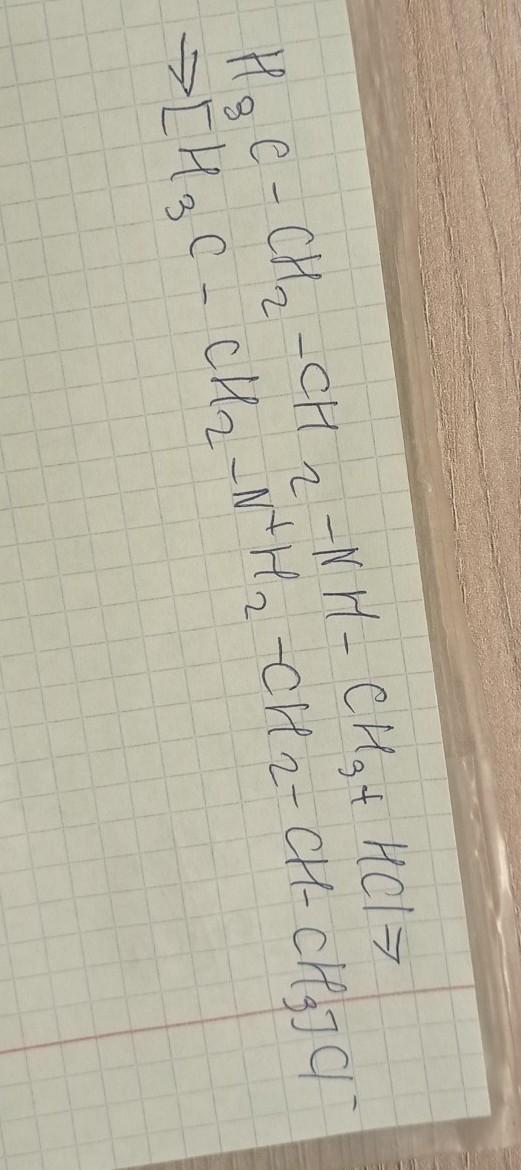 H₃C - CH₂ - CH₂ - NH - CH₃ + HCl →
→ [H₃C - CH₂ - N⁺H₂ - CH₂ - CH - CH₃] Cl⁻